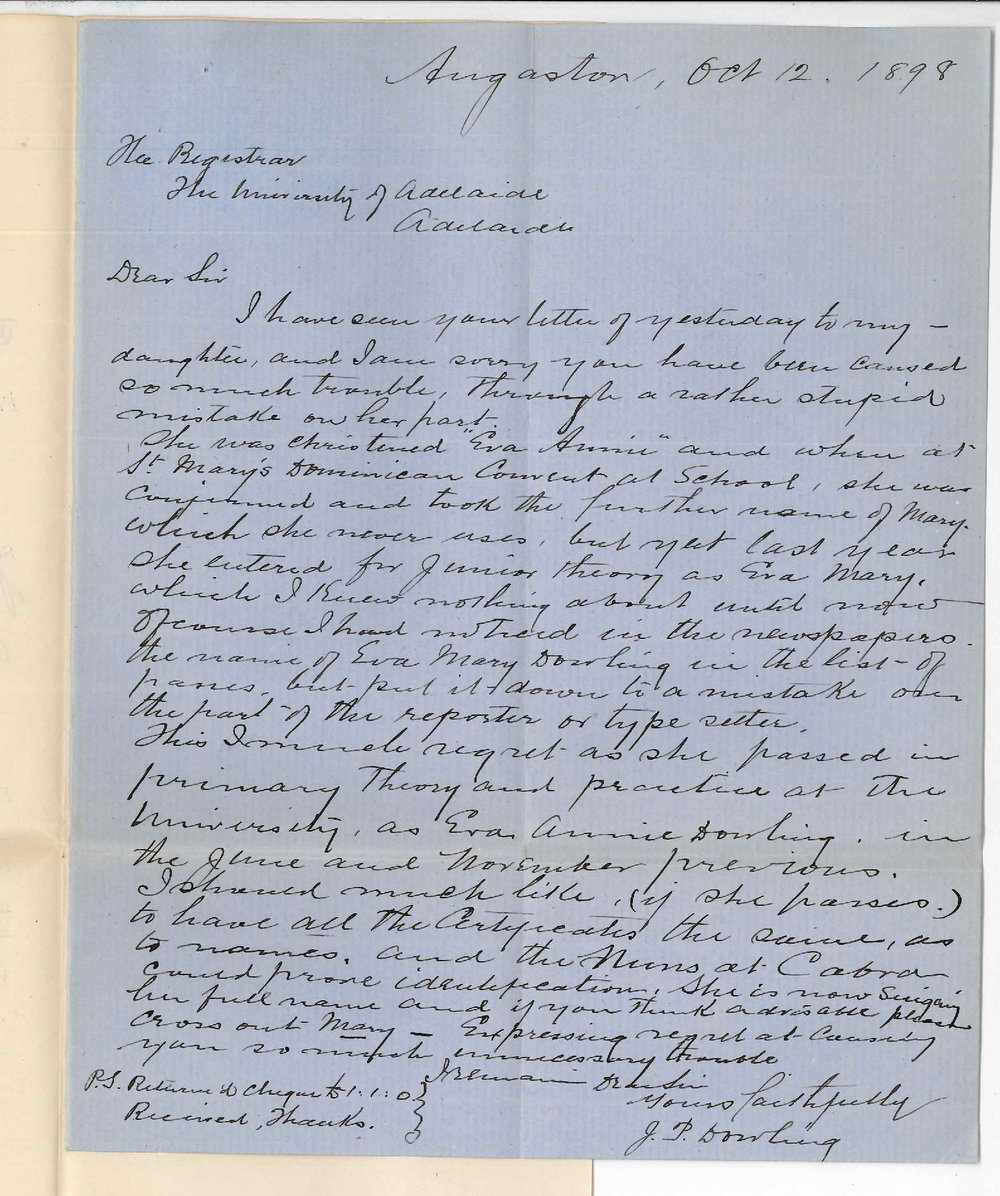 Angaston, Oct 12. 1898
The Registrar
The University of Adelaide
Adelaide
Dear Sir
I have seen your letter of yesterday to my -
daughter, and I am sorry you have been caused
so much trouble, through a rather stupid
mistake on her part.
She was christened "Eva Annie" and when at
St. Mary's Dominican Convent at School, she was
confirmed and took the further name of Mary.
which she never uses, but yet last year
she entered for Junior theory as Eva Mary,
which I knew nothing about until now
of course I had noticed in the newspapers.
the name of Eva Mary Dowling in the list of
passes, but put it down to a mistake on
the part of the reporter or type setter.
This I much regret as she passed in
primary Theory and practice at the
University, as Eva Annie Dowling. in
the June and November previous.
I should much like, (if she passes.)
to have all the Certificates the same, as
to names. and the Nuns at Cabra
could prove identification. She is now signing
her full name and if you think advisable please
cross out Mary — Expressing regret at causing
you so much unnecessary trouble
I remain Dear Sir
Yours faithfully
J. P. Dowling
P.S. Returned Cheque £1:1:0
Received, Thanks.